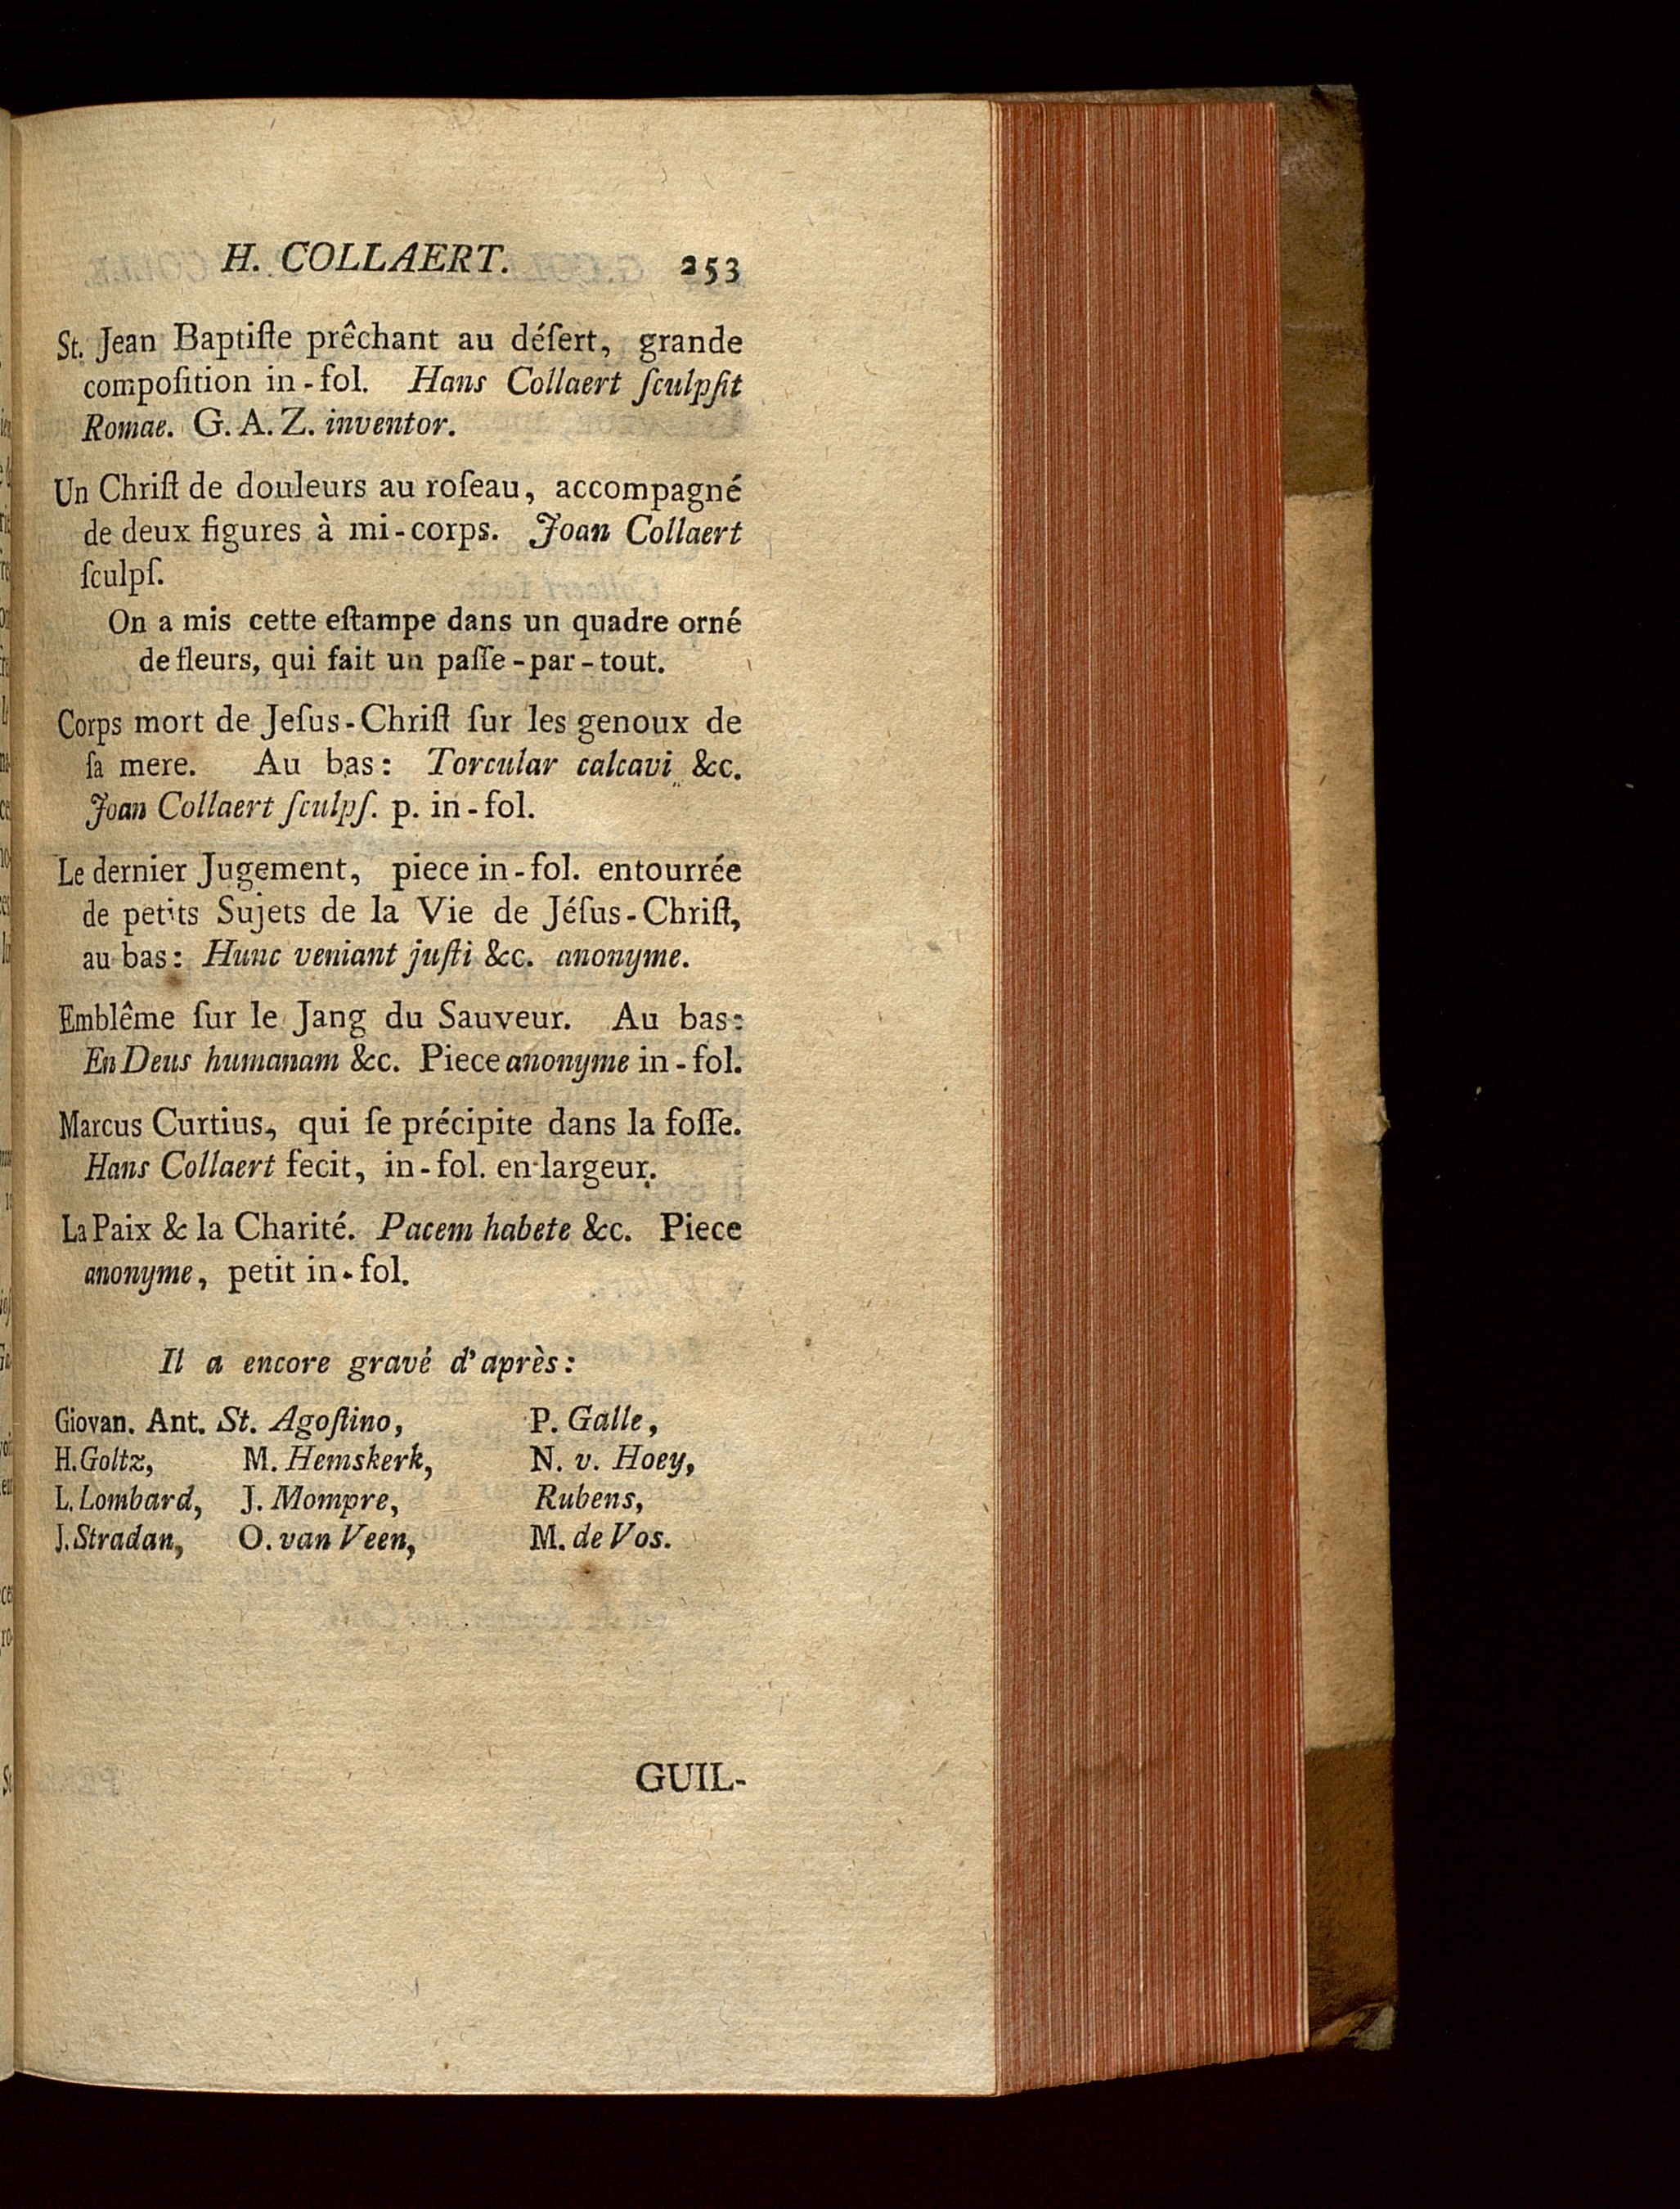 H. COLLAERT. 253
St. Jean Baptiſte prêchant au déſert, grande
compoſition in-fol. Hans Collaert ſculpſit
Romae. G. A. Z. inventor.
Un Chriſt de douleurs au roſeau, accompagné
de deux figures à mi-corps. Joan Collaert
ſculpſ.
On a mis cette eſtampe dans un quadre orné
de fleurs, qui fait un paſſe-par-tout.
Corps mort de Jeſus-Chriſt ſur les genoux de
ſa mere. Au bas: Torcular calcavi &c.
Joan Collaert ſculpſ. p. in-fol.
Le dernier Jugement, piece in-fol. entourrée
de petits Sujets de la Vie de Jéſus-Chriſt,
au bas: Hunc veniant juſti &c. anonyme.
Emblême ſur le Jang du Sauveur. Au bas:
En Deus humanam &c. Piece anonyme in-fol.
Marcus Curtius, qui ſe précipite dans la foſſe.
Hans Collaert fecit, in-fol. en largeur.
La Paix & la Charité. Pacem habete &c. Piece
anonyme, petit in-fol.
Il a encore gravé d'après:
Giovan. Ant. St. Agoſtino, P. Galle,
H. Goltz, M. Hemskerk, N. v. Hoey,
L. Lombard, J. Mompre, Rubens,
J. Stradan, O. van Veen, M. de Vos.
GUIL-